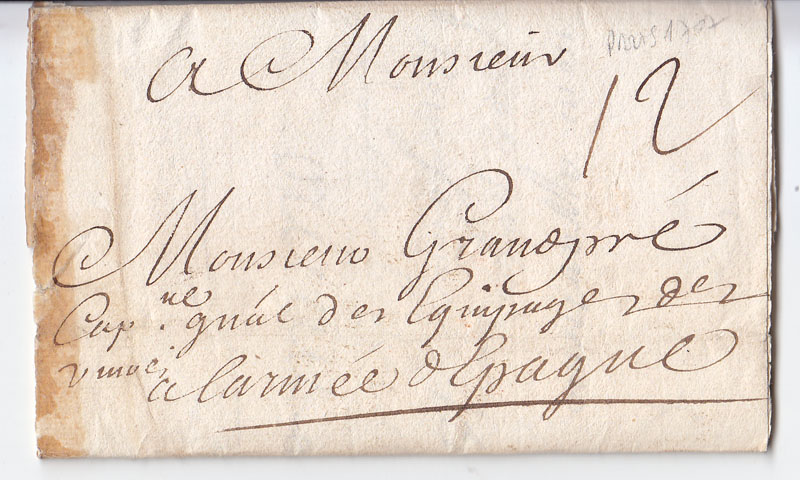 Paris 1707
A Monsieur
12
Monsieur Grandpré
Cap.ne gnál des Equipages des
vivres
a larmée dEpagne